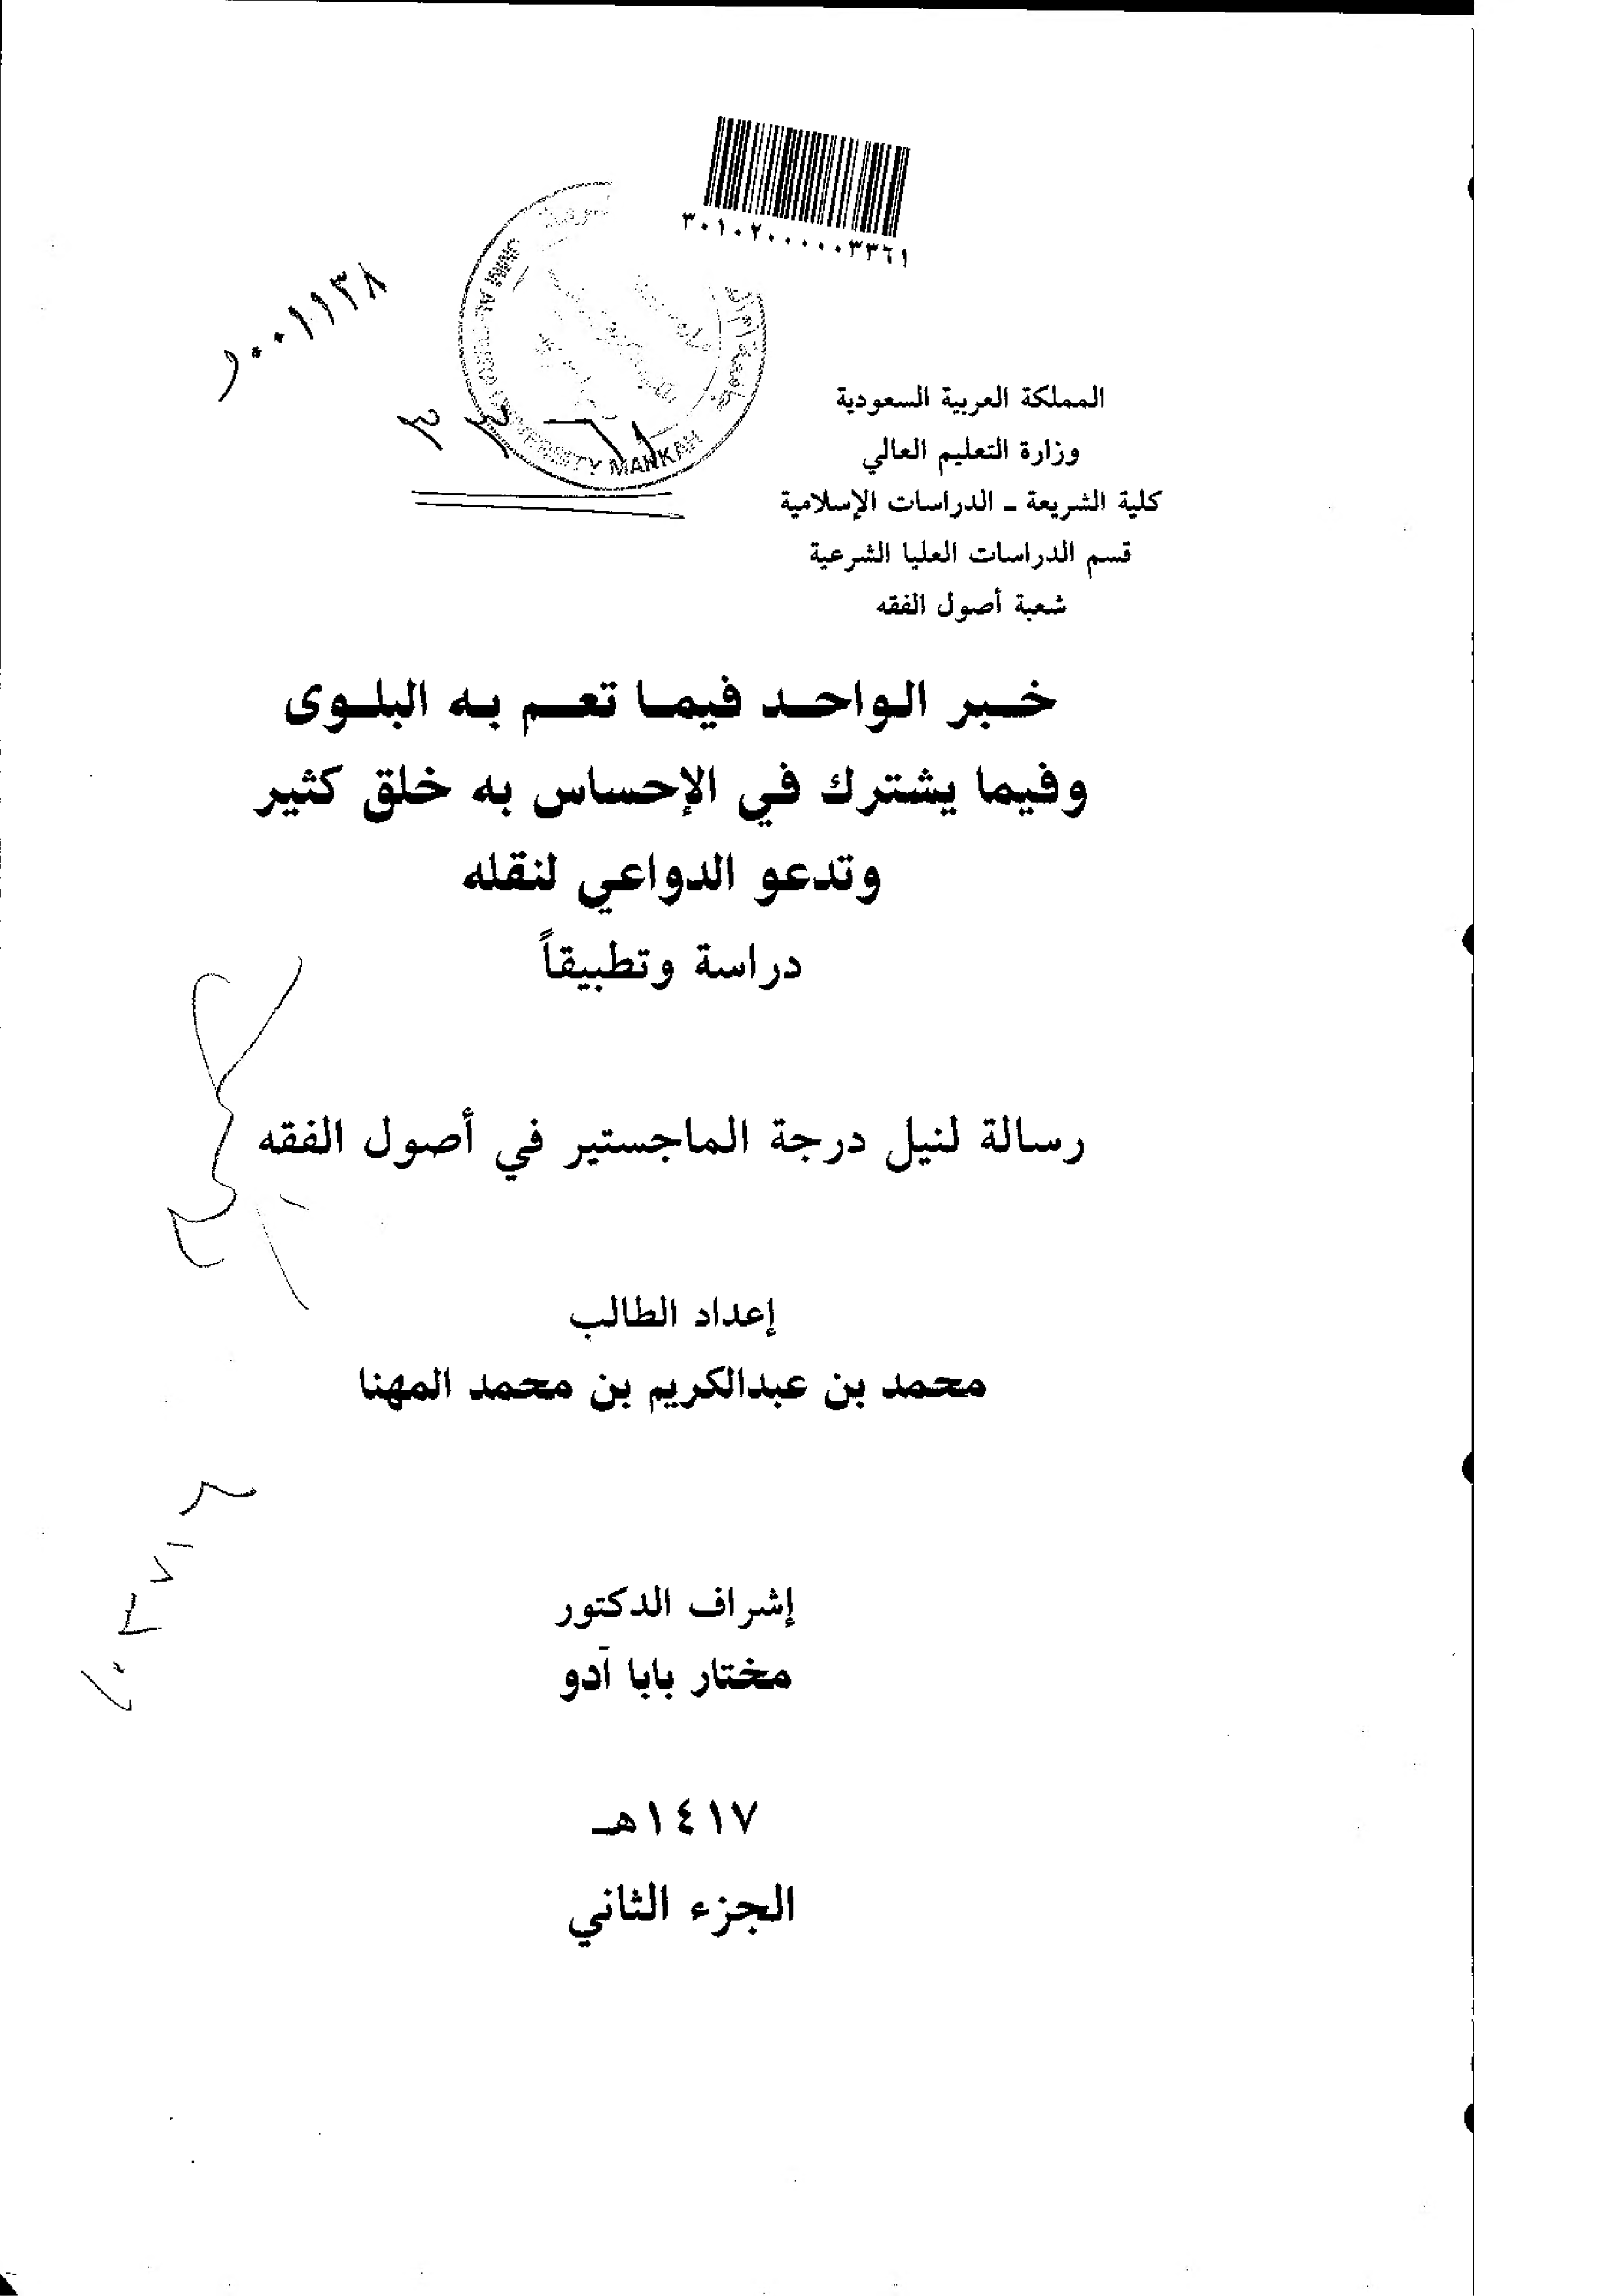 ٣٠١٠٢٠٠٠٠٠٣٣٦١
٠٠١١٣٨
UNIVERSITY MAKKAH
المملكة العربية السعودية
وزارة التعليم العالي
كلية الشريعة ـ الدراسات الإسلامية
قسم الدراسات العليا الشرعية
شعبة أصول الفقه
خبر الواحد فيما تعم به البلوى
وفيما يشترك في الإحساس به خلق كثير
وتدعو الدواعي لنقله
دراسة وتطبيقاً
رسالة لنيل درجة الماجستير في أصول الفقه
إعداد الطالب
محمد بن عبدالكريم بن محمد المهنا
إشراف الدكتور
مختار بابا آدو
١٤١٧هـ
الجزء الثاني